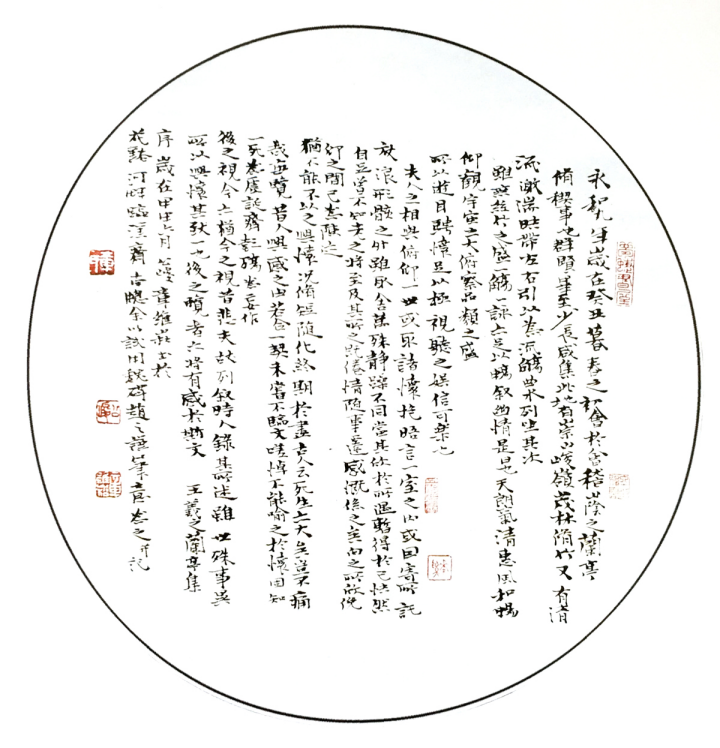 永和九年歲在癸丑暮春之初會於會稽山陰之蘭亭
脩禊事也群賢畢至少長咸集此地有崇山峻嶺茂林脩竹又有清
流激湍暎帶左右引以為流觴曲水列坐其次
雖無絲竹之盛一觴一詠亦足以暢敘幽情是日也天朗氣清惠風和暢
仰觀宇宙之大俯察品類之盛
所以遊目騁懷足以極視聽之娛信可樂也
夫人之相與俯仰一世或取諸懷抱晤言一室之內或因寄所託
放浪形骸之外雖取舍萬殊靜躁不同當其欣於所遇暫得於己快然
自足曾不知老之將至及其所之既倦情隨事遷感慨係之矣向之所欣俛
仰之間已為陳迹
猶不能不以之興懷況脩短隨化終期於盡古人云死生亦大矣豈不痛
哉每覽昔人興感之由若合一契未嘗不臨文嗟悼不能喻之於懷固知
一死生為虛誕齊彭殤為妄作
後之視今亦猶今之視昔悲夫故列敘時人錄其所述雖世殊事異
所以興懷其致一也後之覽者亦將有感於斯文 王羲之蘭亭集
序 歲在甲申六月 韋維 書於
花 河畔臨溪齋 余以 用 碑 之 筆意為之 并記